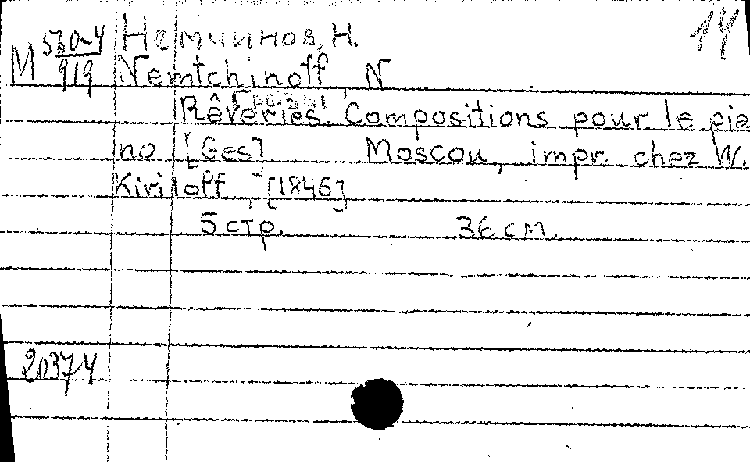 14
М 520-4/919 Немчинов, Н.
Nemtchinoff N
Rêveries. Compositions pour le pia
no [Ges] Moscou, impr. chez W.
Kiriloff, [1846]
5 стр. 36 см.
20374